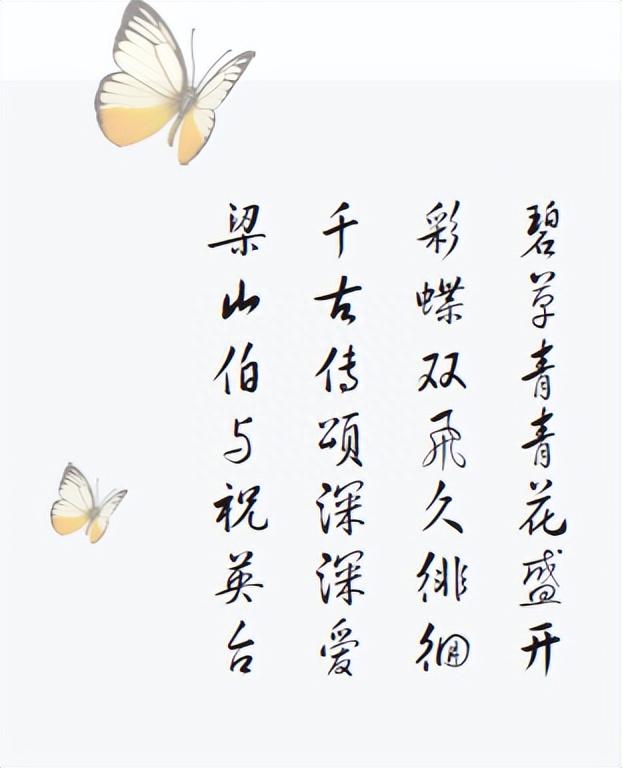 碧草青青花盛开
彩蝶双飞久徘徊
千古传颂深深爱
梁山伯与祝英台